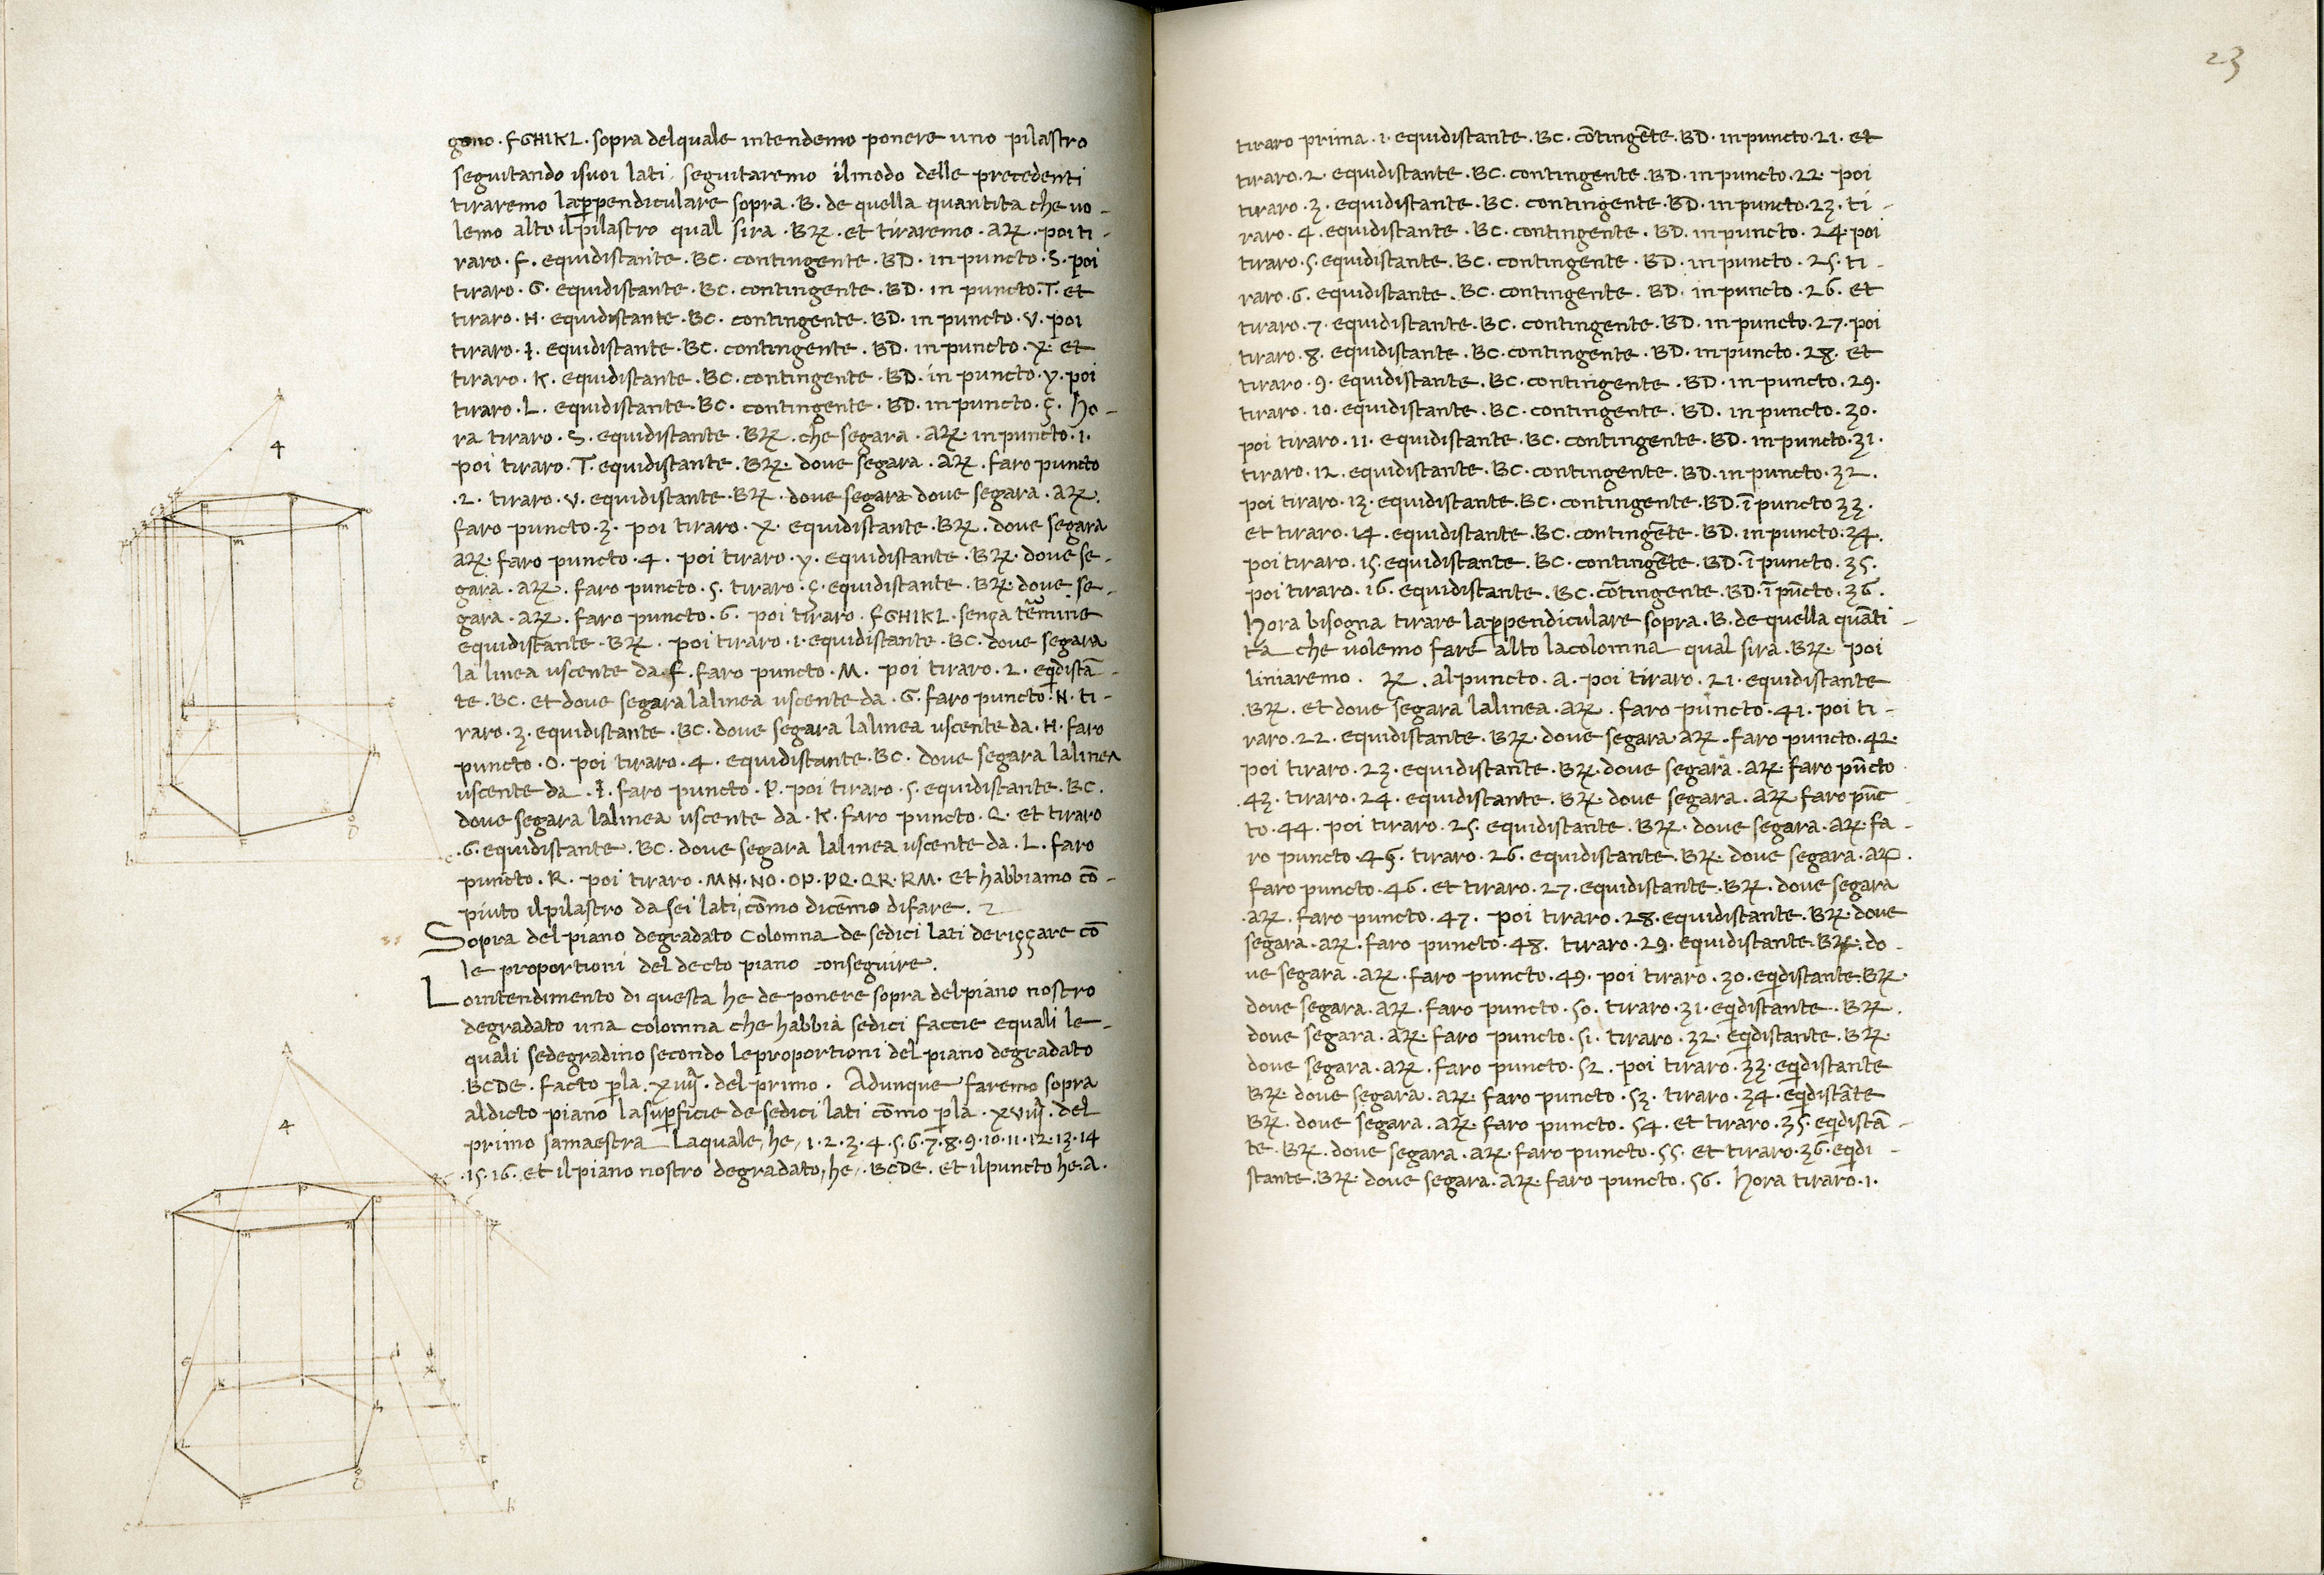 gono · FGHIKL · sopra delquale intendemo ponere uno pilastro
seguitando isuoi lati, seguitaremo ilmodo delle precedenti
tiraremo laperpendiculare sopra · B · de quella quantita che uo -
lemo alto ilpilastro qual sira · BƦ · et tiraremo · AƦ · poi ti -
raro · F · equidistante · BC · contingente · BD · in puncto · S · poi
tiraro · G · equidistante · BC · contingente · BD · in puncto · T · et
tiraro · H · equidistante · BC · contingente · BD · in puncto · V · poi
tiraro · I · equidistante · BC · contingente · BD · in puncto · X · et
tiraro · K · equidistante · BC · contingente · BD · in puncto · y · poi
tiraro · L · equidistante · BC · contingente · BD · in puncto · ç · ho -
ra tiraro · S · equidistante · BƦ · che segara · AƦ · in puncto · 1 ·
poi tiraro · T · equidistante · BƦ · doue segara · AƦ · faro puncto
· 2 · tiraro · V · equidistante · BƦ · doue segara doue segara · AƦ ·
faro puncto · 3 · poi tiraro · X · equidistante · BƦ · doue segara
AƦ · faro puncto · 4 · poi tiraro · y · equidistante · BƦ · doue se -
gara · AƦ · faro puncto · 5 · tiraro · ç · equidistante · BƦ · doue se -
gara · AƦ · faro puncto · 6 · poi tiraro · FGHIKL · sença tēmine
equidistante · BƦ · poi tiraro · 1 · equidistante · BC · doue segara
la linea uscente da · F · faro puncto · M · poi tiraro · 2 · eqdistā -
te · BC · et doue segara lalinea uscente da · G · faro puncto · N · ti -
raro · 3 · equidistante · BC · doue segara lalinea uscente da · H · faro
puncto · O · poi tiraro · 4 · equidistante · BC · doue segara lalinea
uscente da · I · faro puncto · P · poi tiraro · 5 · equidistante · BC ·
doue segara lalinea uscente da · K · faro puncto · Q · et tiraro
· 6 · equidistante · BC · doue segara lalinea uscente da · L · faro
puncto · R · poi tiraro · MN · NO · OP · PQ · QR · RM · et habbiamo cō -
piuto ilpilastro da sei lati, cōmo dicēmo difare ·
Sopra del piano degradato colomna de sedici lati deriççare cō
le proportioni del decto piano conseguire ·
Lointendimento di questa he de ponere sopra delpiano nostro
degradato una colomna che habbia sedici faccie equali le -
quali sedegradino secondo leproportioni del piano degradato
· BCDE · facto p̄la · XIIIIª · del primo · Adunque faremo sopra
aldicto piano lasup̄ficie de sedici lati cōmo p̄la · XVIIIª · del
primo samaestra laquale, he, 1 · 2 · 3 · 4 · 5 · 6 · 7 · 8 · 9 · 10 · 11 · 12 · 13 · 14
· 15 · 16 · et ilpiano nostro degradato, he, · BCDE · et ilpuncto he · A ·
4
4
23
tiraro prima · 1 · equidistante · BC · cōtingēte · BD · in puncto · 21 · et
tiraro · 2 · equidistante · BC · contingente · BD · in puncto · 22 · poi
tiraro · 3 · equidistante · BC · contingente · BD · in puncto · 23 · ti -
raro · 4 · equidistante · BC · contingente · BD · in puncto · 24 · poi
tiraro · 5 · equidistante · BC · contingente · BD · in puncto · 25 · ti -
raro · 6 · equidistante · BC · contingente · BD · in puncto · 26 · et
tiraro · 7 · equidistante · BC · contingente · BD · in puncto · 27 · poi
tiraro · 8 · equidistante · BC · contingente · BD · in puncto · 28 · et
tiraro · 9 · equidistante · BC · contingente · BD · in puncto · 29 ·
tiraro · 10 · equidistante · BC · contingente · BD · in puncto · 30 ·
poi tiraro · 11 · equidistante · BC · contingente · BD · in puncto · 31 ·
tiraro · 12 · equidistante · BC · contingente · BD · in puncto · 32 ·
poi tiraro · 13 · equidistante · BC · contingente · BD · ī puncto 33 ·
et tiraro · 14 · equidistante · BC · contingēte · BD · in puncto · 34 ·
poi tiraro · 15 · equidistante · BC · contingēte · BD · ī puncto · 35 ·
poi tiraro · 16 · equidistante · BC · cōtingente · BD · ī pūcto · 36 ·
hora bisogna tirare lap̄pendiculare sopra · B · de quella quāti -
ta che uolemo fare alto lacolomna qual sira · BƦ · poi
liniaremo · Ʀ · alpuncto · A · poi tiraro · 21 · equidistante
· BƦ · et doue segara lalinea · AƦ · faro puncto · 41 · poi ti -
raro · 22 · equidistante · BƦ · doue segara · AƦ · faro puncto · 42 ·
poi tiraro · 23 · equidistante · BƦ · doue segara · AƦ · faro pūcto
· 43 · tiraro · 24 · equidistante · BƦ · doue segara · AƦ faro pūc
to · 44 · poi tiraro · 25 · equidistante · BƦ · doue segara · AƦ · fa -
ro puncto · 45 · tiraro · 26 · equidistante · BƦ · doue segara · AƦ ·
faro puncto · 46 · et tiraro · 27 · equidistante · BƦ · doue segara
· AƦ · faro puncto · 47 · poi tiraro · 28 · equidistante · BƦ · doue
segara · AƦ · faro puncto · 48 · tiraro · 29 · equidistante · BƦ · do -
ue segara · AƦ · faro puncto · 49 · poi tiraro · 30 · eqdistante · BƦ ·
doue segara · AƦ · faro puncto · 50 · tiraro · 31 · eqdistante · BƦ ·
doue segara · AƦ · faro puncto · 51 · tiraro · 32 · eqdistante · BƦ ·
doue segara · AƦ · faro puncto · 52 · poi tiraro · 33 · eqdistante
BƦ · doue segara · AƦ · faro puncto · 53 · tiraro · 34 · eqdistāte
BƦ · doue segara · AƦ · faro puncto · 54 · et tiraro · 35 · eqdistā -
te · BƦ · doue segara · AƦ · faro puncto · 55 · et tiraro · 36 · eqdi -
stante · BƦ · doue segara · AƦ · faro puncto · 56 · hora tiraro · 1 ·